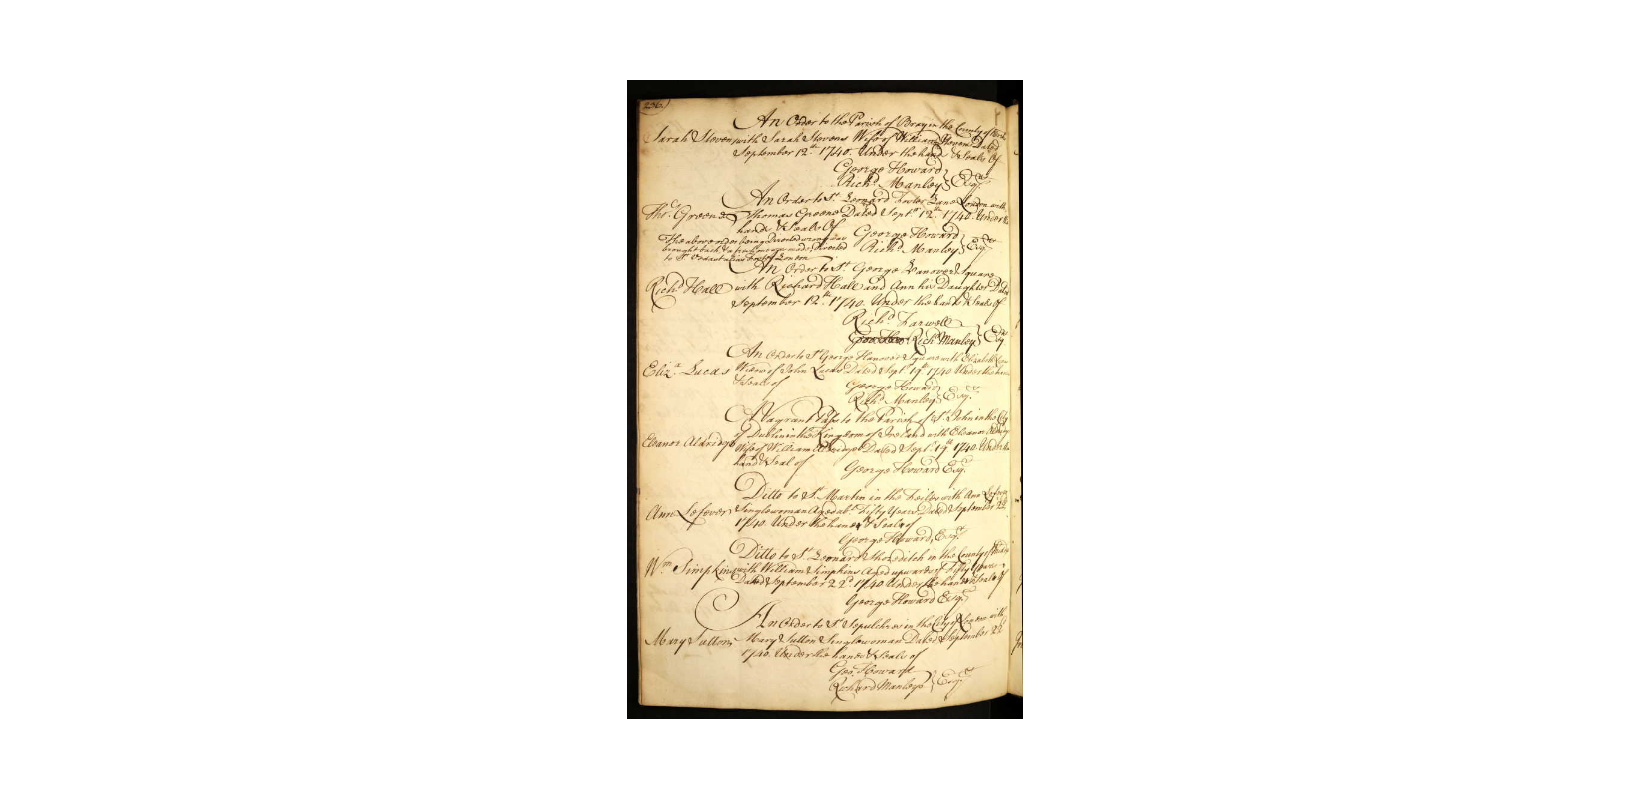 236
An Order to the Parish of Bray in the County of Berks
Sarah Stevens with Sarah Stevens Wife of William Stevens Dated
September 12th. 1740. Under the hand & Seals Of
George Howard
Richd. Manley } Esqrs.
An Order to St. Leonard Foster Lane London with
Thos. Greene Thomas Greene Dated Septr. 12th. 1740. Under the
hand & Seals Of George Howard
Richd. Manley } Esqrs.
The above order being Directed wrong was
brought back & Directed
to St. Vedast alias Foster London
An Order to St. George Hanover Square
Richd. Hall with Richard Hall and Ann his Daughter Dated
September 12th. 1740. Under the hand & Seals Of
Richd. Farwell
Richd. Manley } Esqrs.
An Order to St. George Hanover Square with Elizabeth Lucas
Eliza. Lucas Widow of John Lucas Dated Septr. 19th. 1740 Under the hand
& Seals of George Howard
Richd. Manley } Esqrs.
A Vagrant Pass to the Parish of St. John in the City
of Dublin in the Kingdom of Ireland with Eleanor Aldridge
Eleanor Aldridge Wife of William Aldridge Dated Septr. 19th 1740. Under the
hand & Seal of George Howard Esqr.
Ditto to St. Martin in the Feilds with Ann Lefever
Ann Lefever Singlewoman Aged abt. Fifty Years Dated September 22
1740. Under the hand & Seal of
George Howard, Esqr.
Ditto to St. Leonard Shoreditch in the County of Middx
Wm. Simpkins with William Simpkins Aged upwards of Fifty Years
Dated September 22d. 1740. Under the hand & Seal Of
George Howard Esqr.
An Order to St. Sepulchres in the City of London with
Mary Sutton Mary Sutton Singlewoman Dated September 22
1740. Under the hand & Seals of
Geo. Howard
Richard Manley } Esqrs.